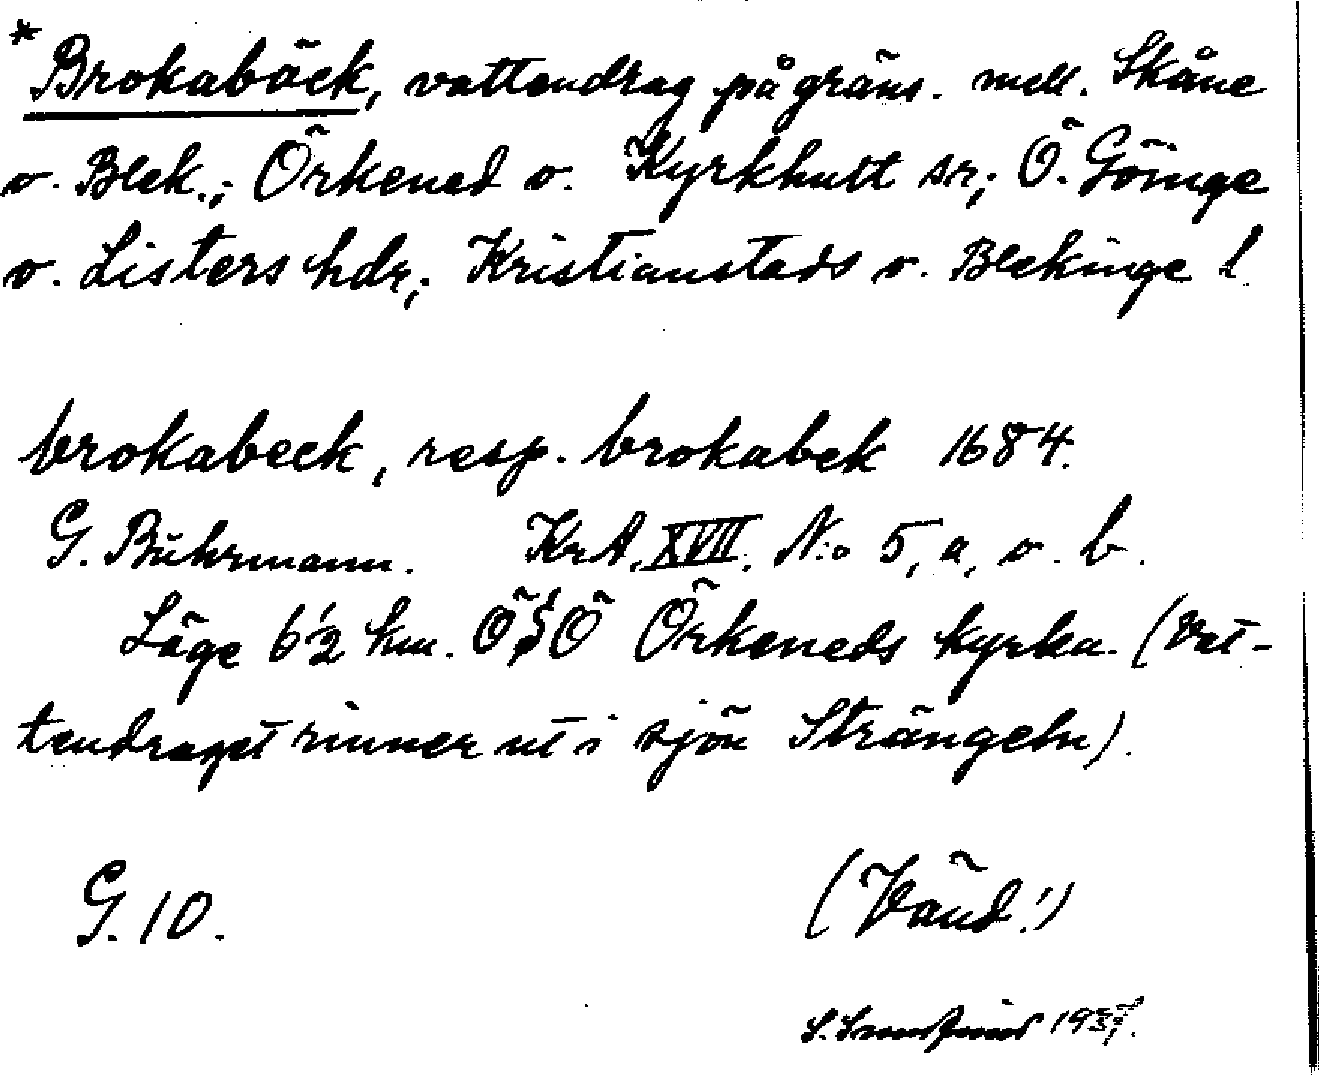 * Brokabäck, vattendrag på gräns. mell. Skåne
o. Blek.; Örkened o. Kyrkhult sr; Ö. Göinge
o. Listers hdr; Kristianstads o. Blekinge l.
brokabeck, resp. brokabek 1684.
G. Buhrmann. KrA. XVII. N:o 5, a, o. b.
Läge 6 1/2 km. ÖSÖ Örkeneds kyrka. (Vat-
tendraget rinner ut i sjön Strängeln).
G. 10. (Vänd!)
S. 1937.